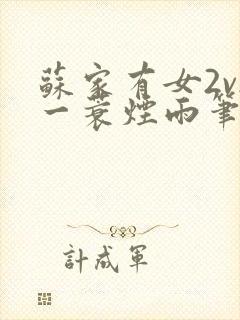 蘇家有女2v
一蓑煙雨筆
計成軍